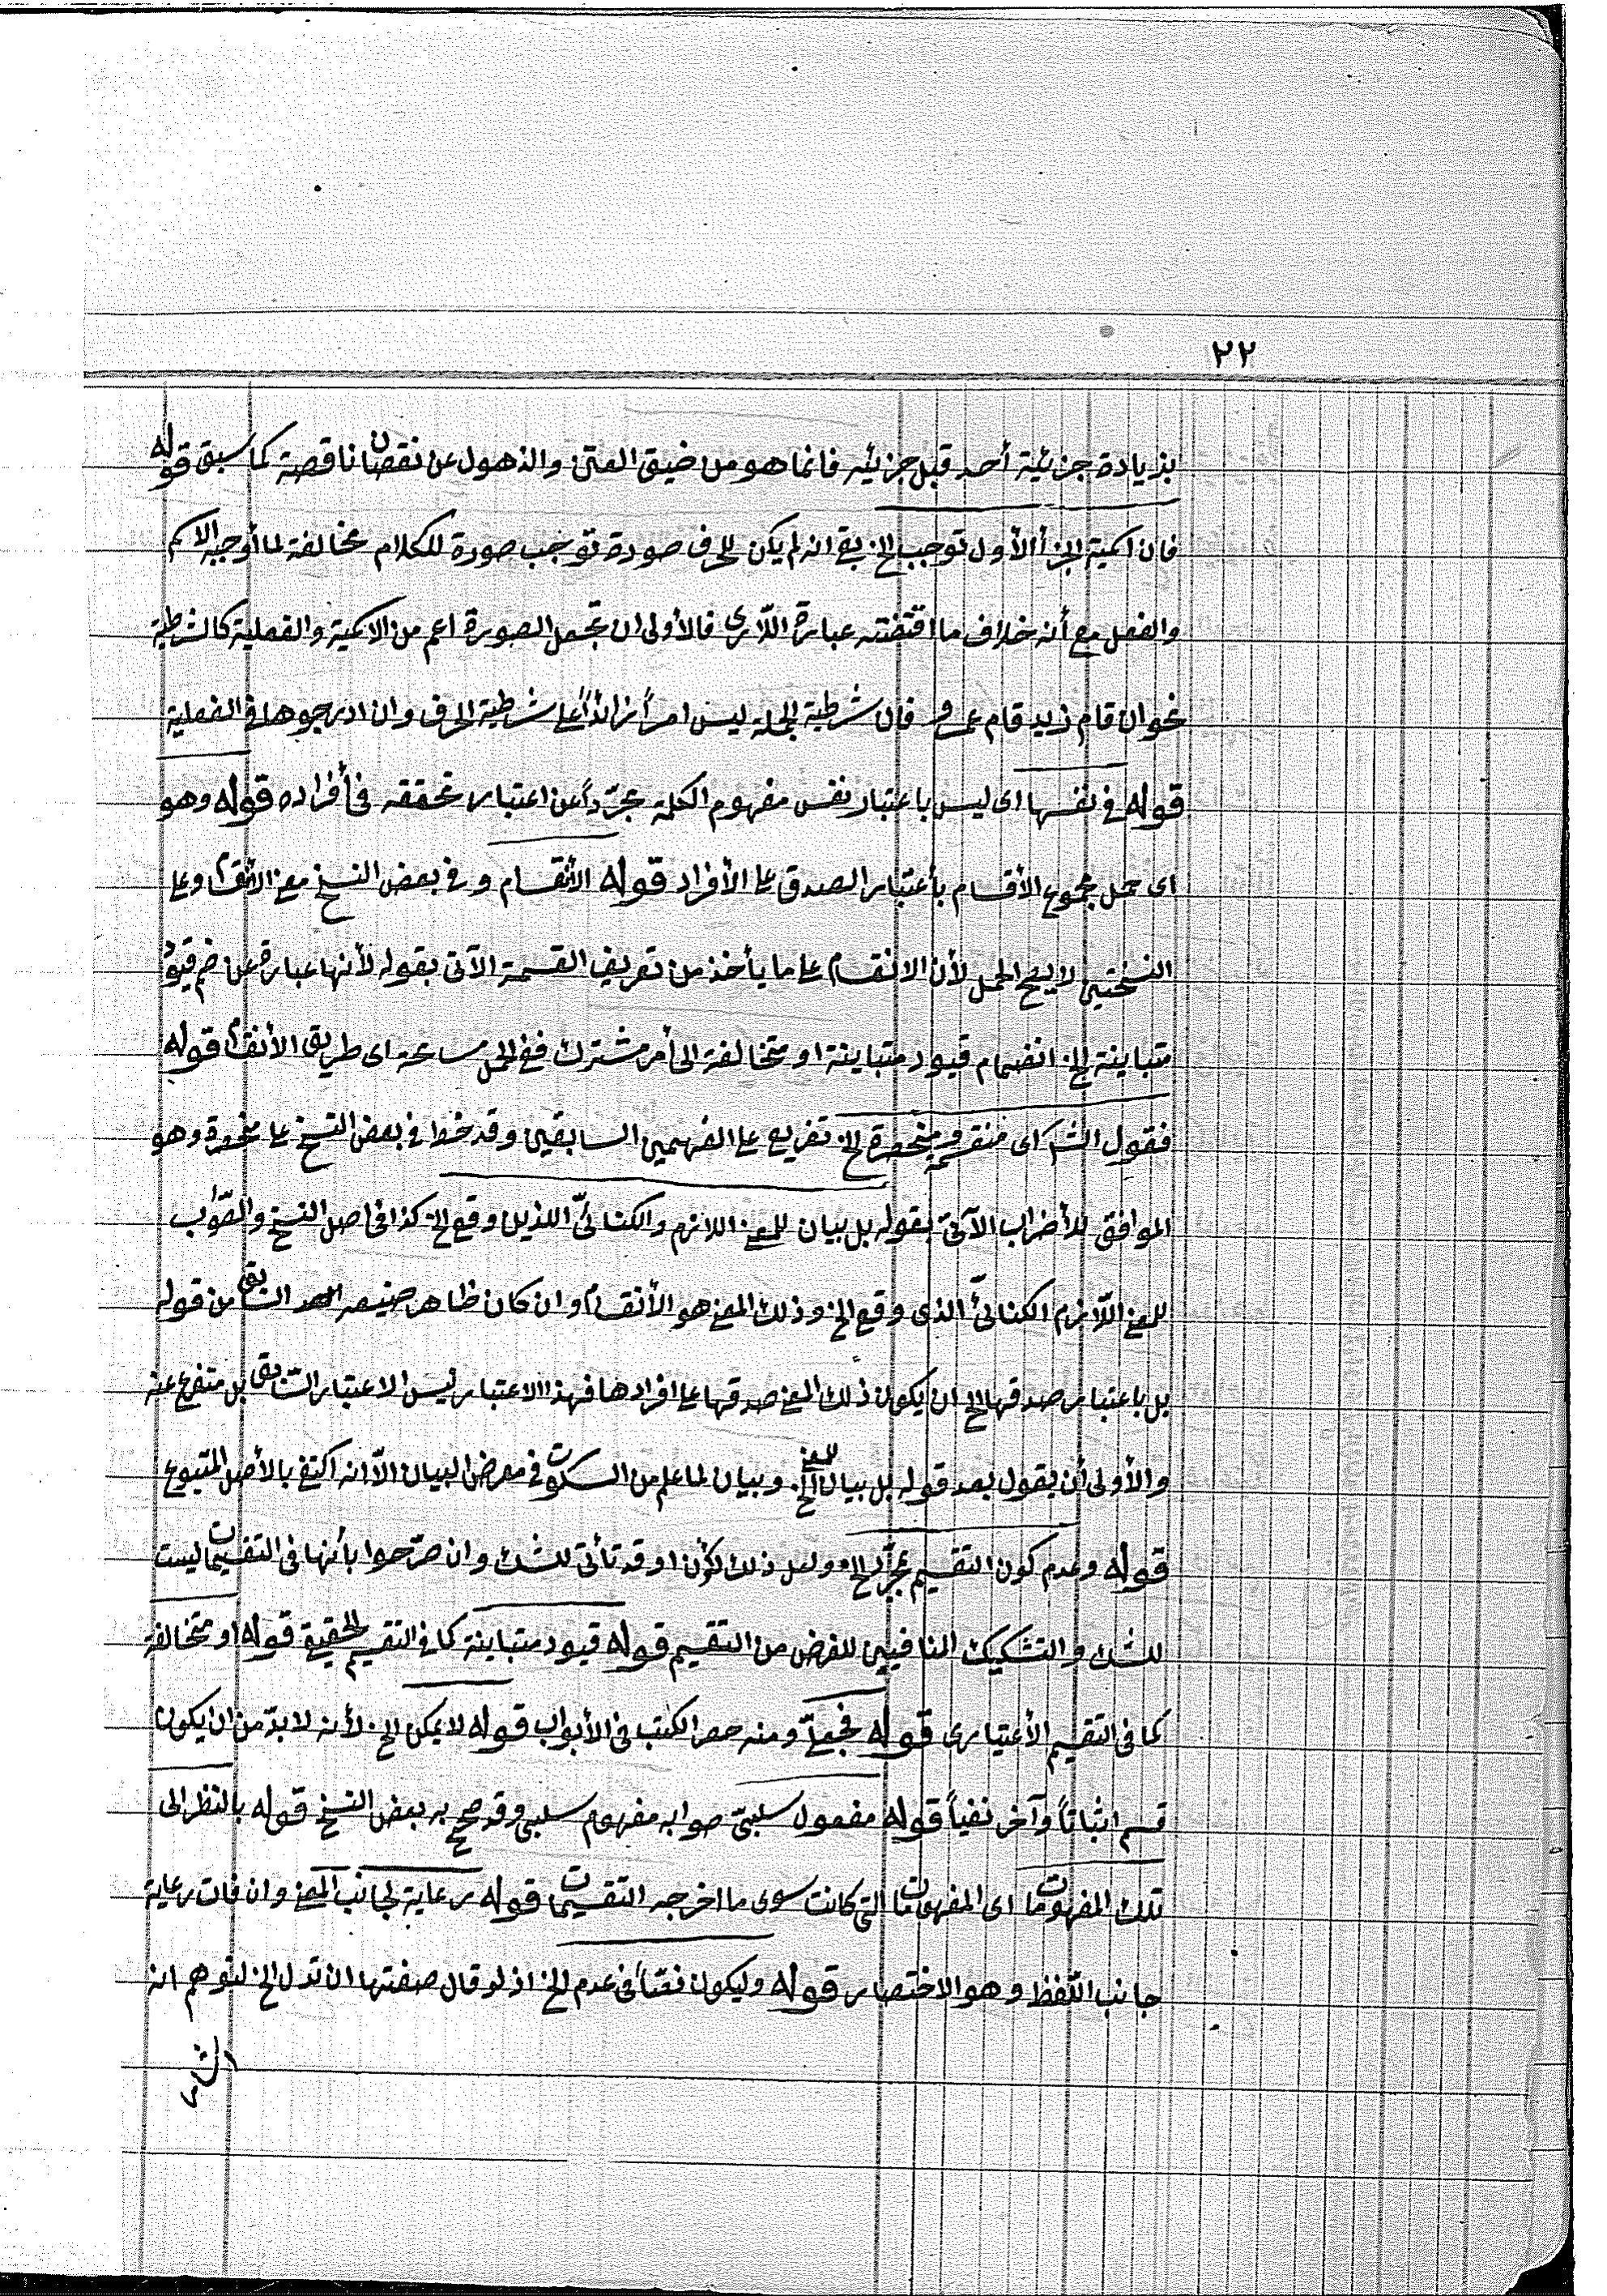 ٢٢
بزيادة جزئية أحد قبل جزئيه فانما هو من ضيق العتن والذهول عن نقصان ناقصة كما سبق قوله
فان اسمية الجزأ الأول توجب الخ بقى انه لم يكن للحرف صورة توجب صورة للكلام مخالفة لما أوجبه الاسم
والفعل مع أنه خلاف ما اقتضته عبارة اللّارى فالأولى ان تجعل الصورة اعم من الاسمية والفعلية كالشرطية
نحو ان قام زيد قام عمرو فان شرطية الجملة ليس امراً زائداً على شرطية الحرف وان ادرجوها فى الفعلية
قوله فى نفسها اى ليس باعتبار نفس مفهوم الكلمة مجرّداً عن اعتبار تحققه فى أفراده قوله وهو
اى حمل مجموع الأقسام بأعتبار الصدق على الأفراد قوله الانقسام وفى بعض النسخ معنى الانقسام وعلى
النسختين لا يصح الحمل لأن الانقسام على ما يأخذ من تعريف القسمة الآتى بقوله لأنها عبارة عن ضم قيود
متباينة الخ انضمام قيود متباينة او متخالفة الى أمر مشترك ففى الحمل مسامحة اى طريق الأنقسام قوله
فقول الشـ اى منقسمة ومنحصرة الخ تفريع على الفهمين السابقين وقد خط فى بعض النسخ على منحصرة وهو
الموافق للأضراب الآتى بقوله بل بيان للمعنى اللازم والكنائىّ اللذين وقع الخ كذا فى اصل النسخ والصّواب
للمعنى اللّازم الكنائىّ الذى وقع الخ وذلك المعنى هو الأنقسام وان كان ظاهر صنيعه السابق من قوله
بل باعتبار صدقها الخ ان يكون ذلك المعنى صدقها على افرادها فهذا الاعتبار ليس الاعتبار السّابق بل متفرع عنه
والأولى أن يقول بعد قوله بل بيان للمعنى الخ. وبيان لما علم من السكوت فى معرض البيان الّا انه اكتفى بالأصل المتبوع
قوله وعدم كون التقسيم مجرّ الخ ولعل ذلك لكون او قد تأتى للشك وان صرّحوا بأنها فى التقسيمات ليست
للشك والتشكيك المنافيين للغرض من التقسيم قوله قيود متباينة كما فى التقسيم الحقيقى قوله او متخالفة
كما فى التقسيم الأعتبارى قوله فجمع ومنه حصر الكتب فى الأبواب قوله لا يمكن الخ. لأنه لا بدّ من ان يكون
قسم اثباتاً وآخر نفياً قوله مفعول سلبىّ صوابه مفهوم سلبى وقد صحح به بعض النسخ قوله بالنظر الى
تلك المفهومات اى المفهومات التى كانت سوى ما اخرجه التقسيمات قوله رعاية لجانب المعنى وان فات رعاية
جانب اللّفظ وهو الاختصار قوله وليكون نصّاً فى عدم الخ اذ لو قال صفتها ان تدل الخ لتوهم انه